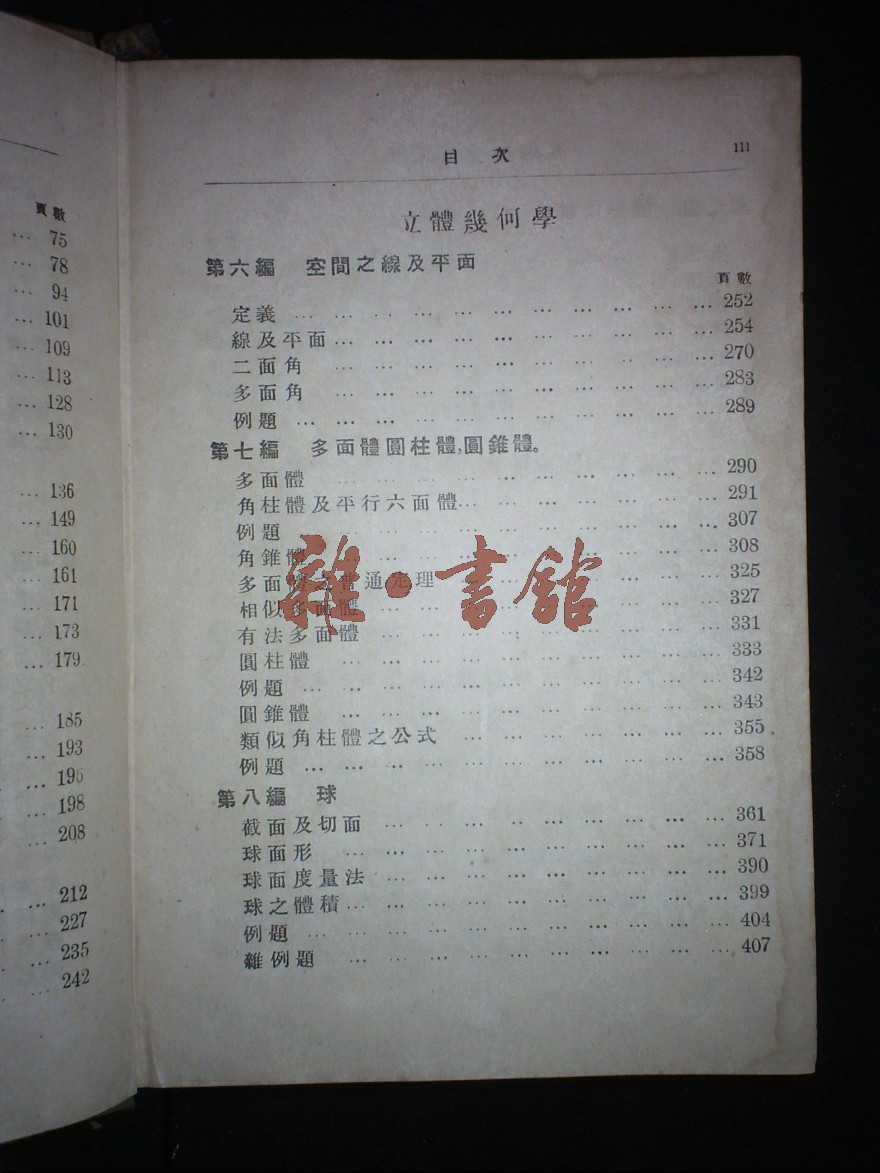 頁數
… 75
… 78
… 94
… 101
… 109
… 113
… 128
… 130
… 136
… 149
… 160
… 161
… 171
… 173
… 179
… 185
… 193
… 195
… 198
… 208
… 212
… 227
… 235
… 242
目次 111
立體幾何學
第六編 空間之線及平面
頁數
定義 … 252
線及平面 … 254
二面角 … 270
多面角 … 283
例題 … 289
第七編 多面體圓柱體,圓錐體。
多面體 … 290
角柱體及平行六面體 … 291
例題 … 307
角錐體 … 308
多面體之普通定理 … 325
相似多面體 … 327
有法多面體 … 331
圓柱體 … 333
例題 … 342
圓錐體 … 343
類似角柱體之公式 … 355
例題 … 358
第八編 球
截面及切面 … 361
球面形 … 371
球面度量法 … 390
球之體積 … 399
例題 … 404
雜例題 … 407
雜·書館